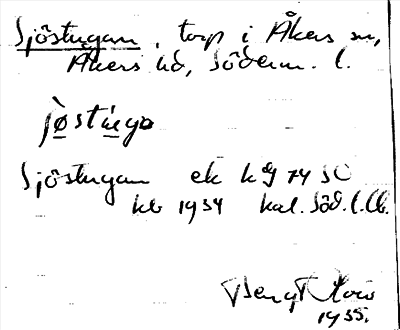 Sjöstugan, torp i Åkers sn,
Åkers hd, Söderm. l.
jøstùga
Sjöstugan ek kbl 74 SO
kb 1934 kal. Söd. l.
Bengt
1935.